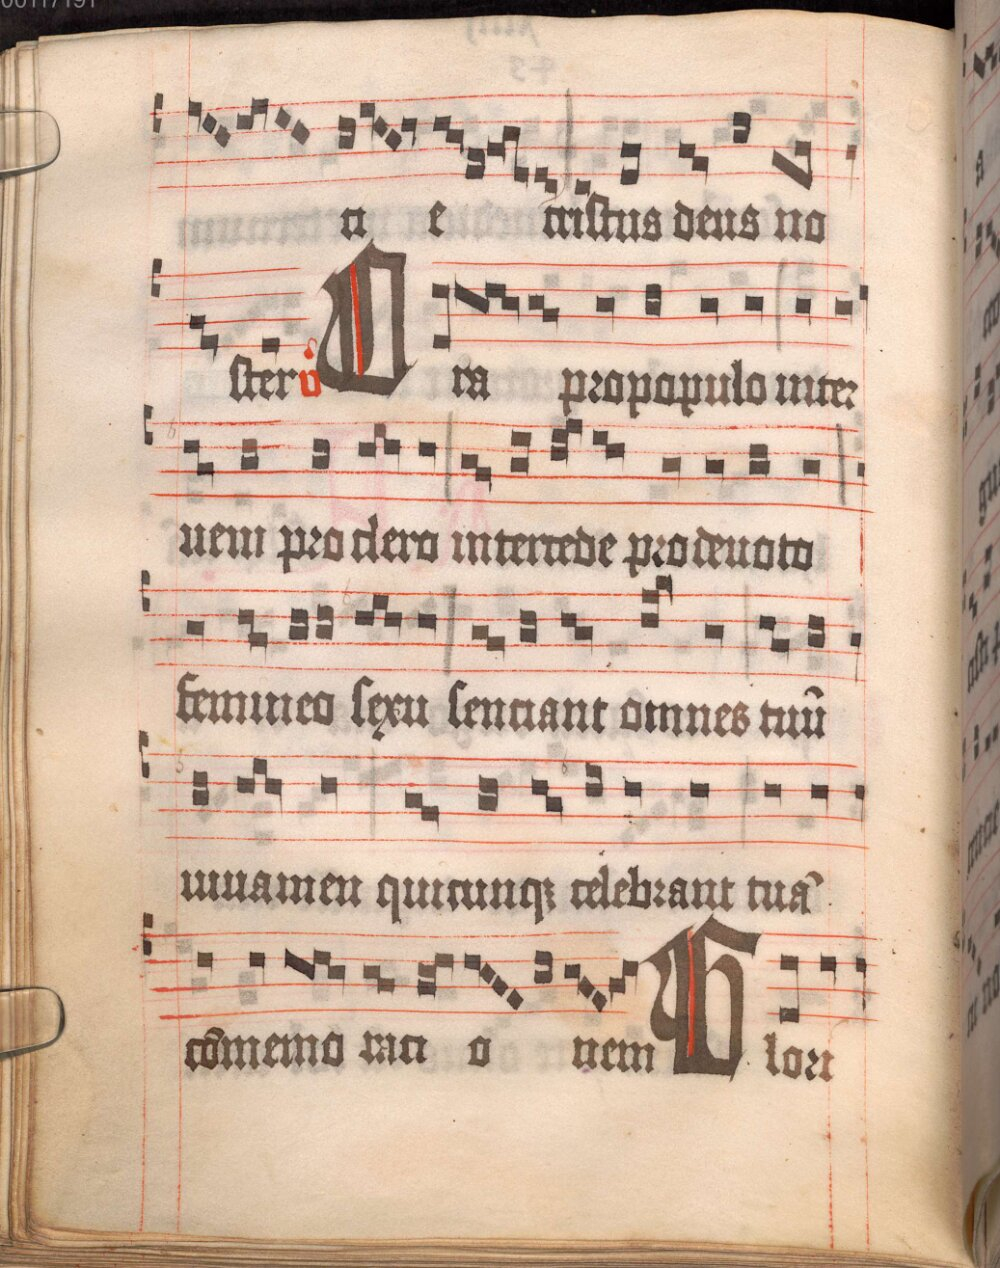 00117191
ti e cristus deus no
ster v̇ Ora pro populo inter
ueni pro clero intercede pro deuoto
femineo sexu senciant omnes tuū
iuuamen quicunqꝫ celebrant tuā
cōmemo raci o nem Glori